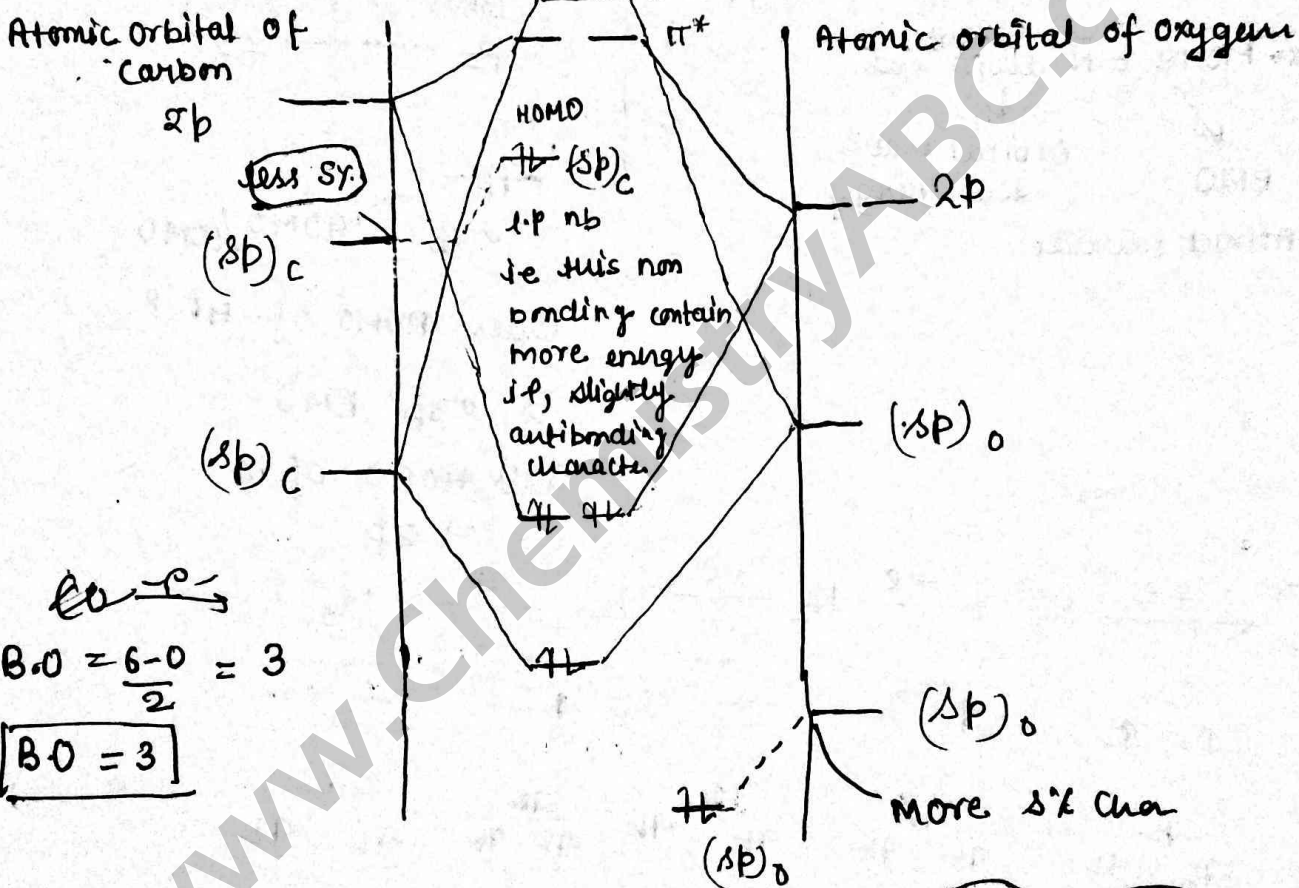 Atomic orbital of
Carbon
2p
less S%
(sp)C
(sp)C
π*
HOMO
(sp)C
l.p nb
ie this non
bonding contain
more energy
ie, slightly
antibonding
character
Atomic orbital of oxygen
2p
(sp)o
(sp)o
more s% Cha
(sp)o
B.O = 6-0 / 2 = 3
B.O = 3
www.ChemistryABC.c